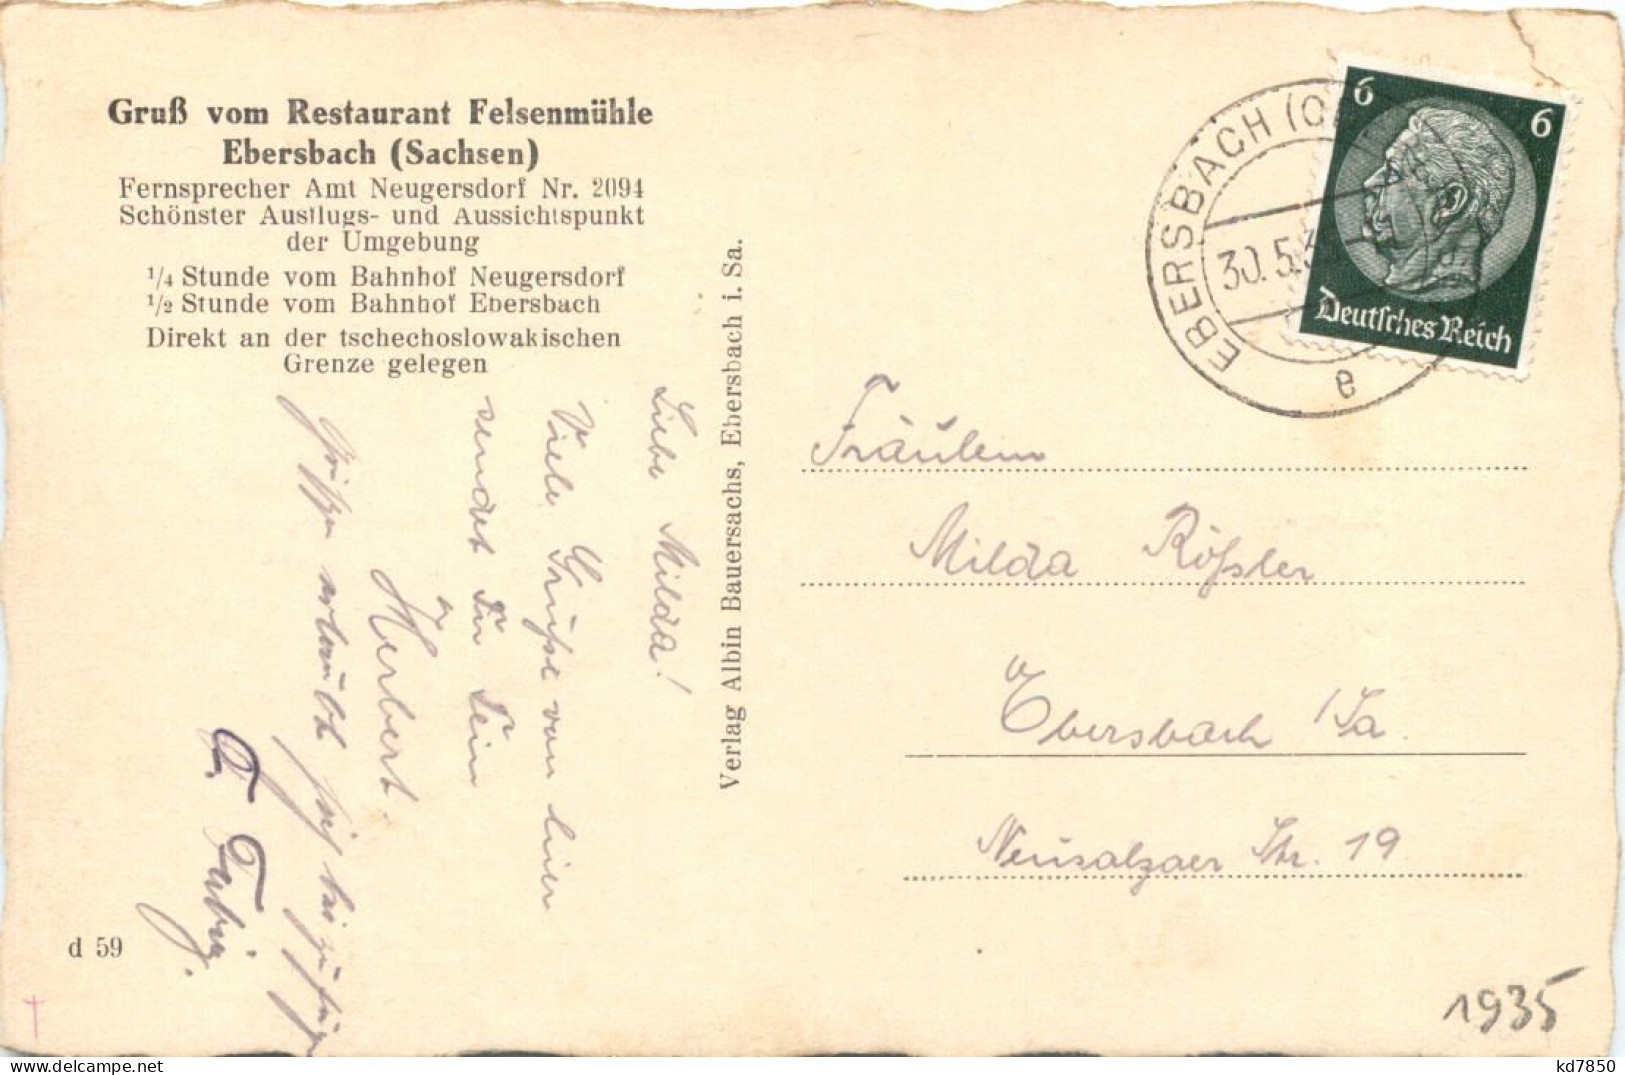 Gruß vom Restaurant Felsenmühle
Ebersbach (Sachsen)
Fernsprecher Amt Neugersdorf Nr. 2094
Schönster Ausflugs- und Aussichtspunkt
der Umgebung
1/4 Stunde vom Bahnhof Neugersdorf
1/2 Stunde vom Bahnhof Ebersbach
Direkt an der tschechoslowakischen
Grenze gelegen
Liebe Milda!
Viele Grüße von hier
sendet Dir Dein
Herbert.
Grüße erlaubt sich beizufügen
d 59
Verlag Albin Bauersachs, Ebersbach i. Sa.
EBERSBACH (O
30.5.3
e
6 6
Deutsches Reich
Fräulein
Milda Rößler
Ebersbach /Sa.
Neusalzaer Str. 19
1935
kd7850